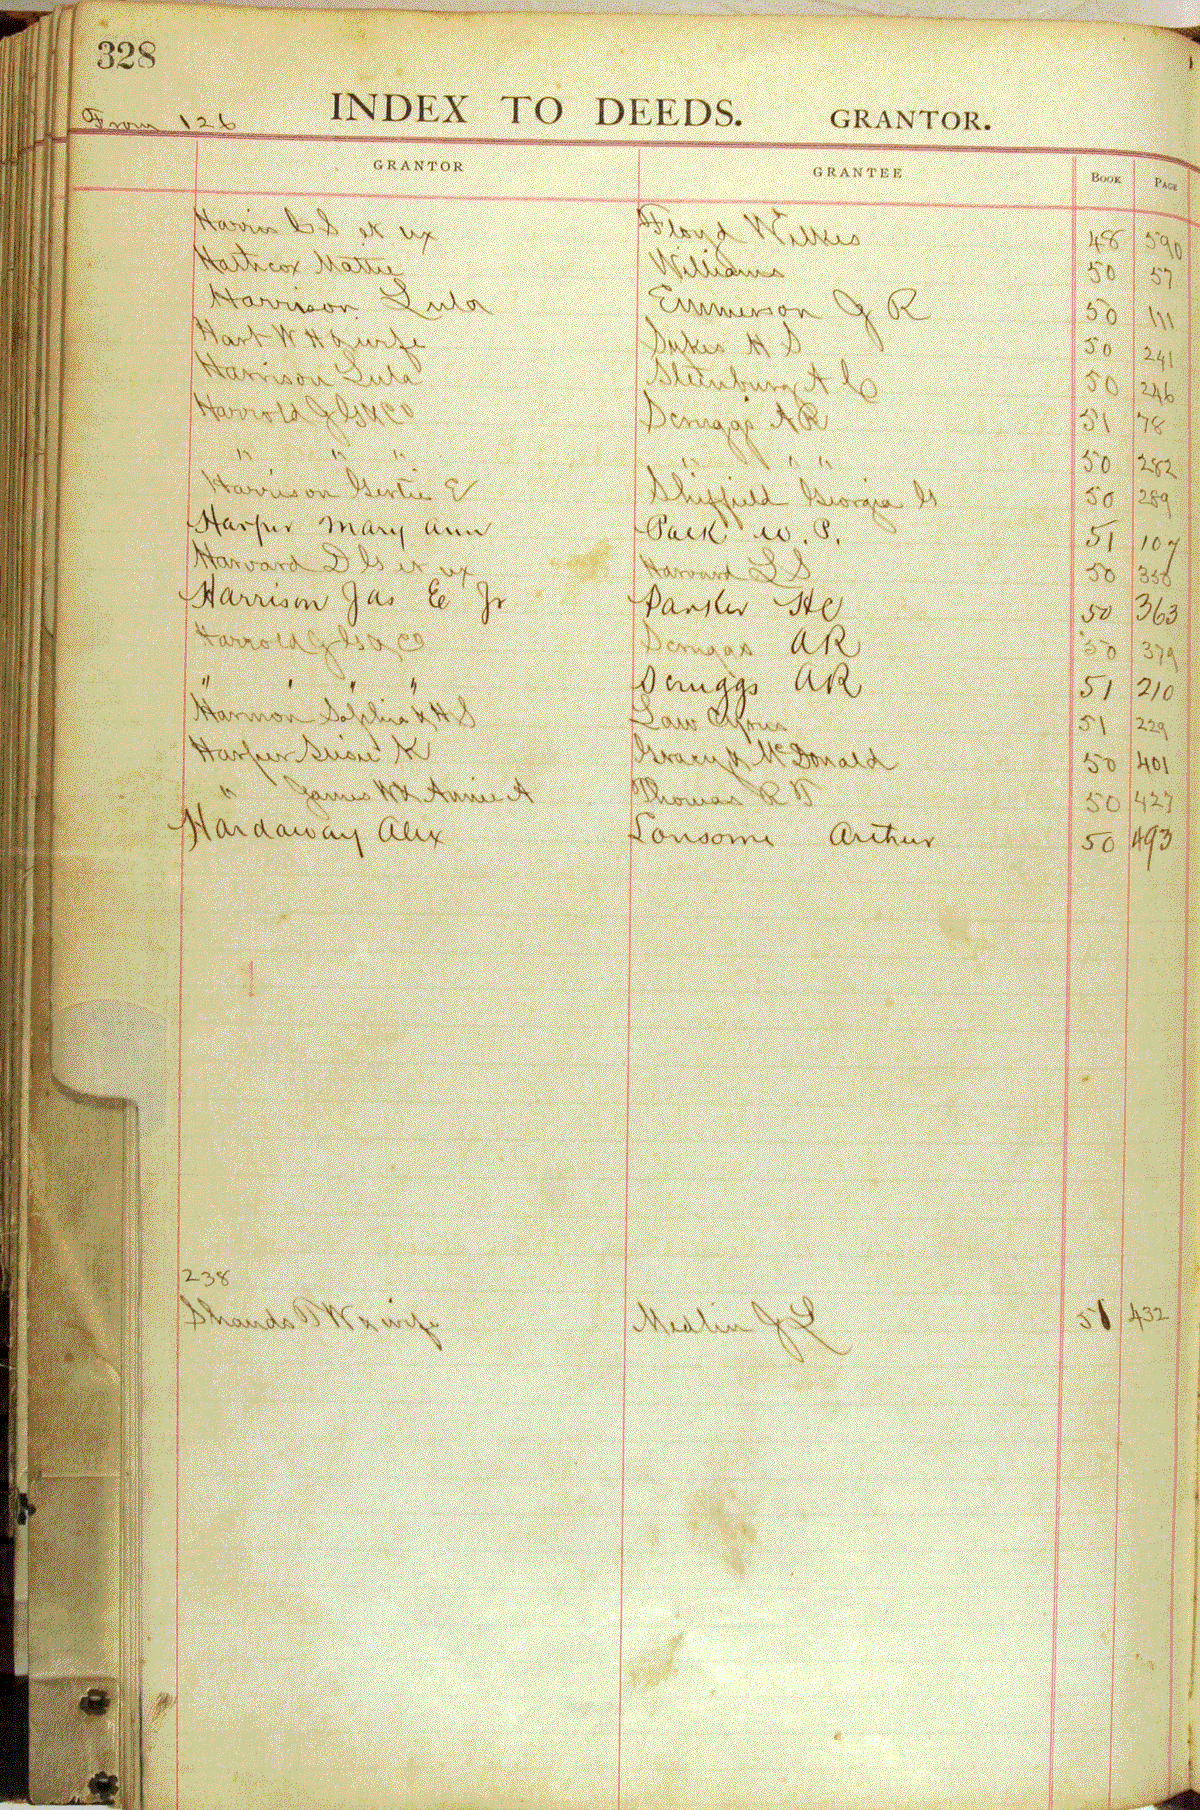 328
INDEX TO DEEDS. GRANTOR.
From 126
GRANTOR GRANTEE BOOK PAGE
Harris C S et ux Floyd Wilkes 48 590
Hathcox Mattie Williams 50 57
Harrison Lula Emmerson J R 50 111
Hart W H & wife Sykes H S 50 241
Harrison Lula A C 50 246
Harrold J G & Co Scruggs A R 51 78
" " " " " " 50 282
Harrison Gertie E Shiffield Georgia G 50 289
Harper Mary Ann Pack W. P. 51 107
Harvard D G et ux Harvard L S 50 350
Harrison Jas E Jr Parker H C 50 363
Harrold J G & Co Scruggs A R 50 379
" " " " Scruggs A R 51 210
Harmon Sophia & H S Law Cyrus 51 229
Harper Susie K McDonald 50 401
" James W & Annie A Thomas R T 50 427
Hardaway Alex Lonsome Arthur 50 493
238
Shands T W & wife Medlin J L 51 432